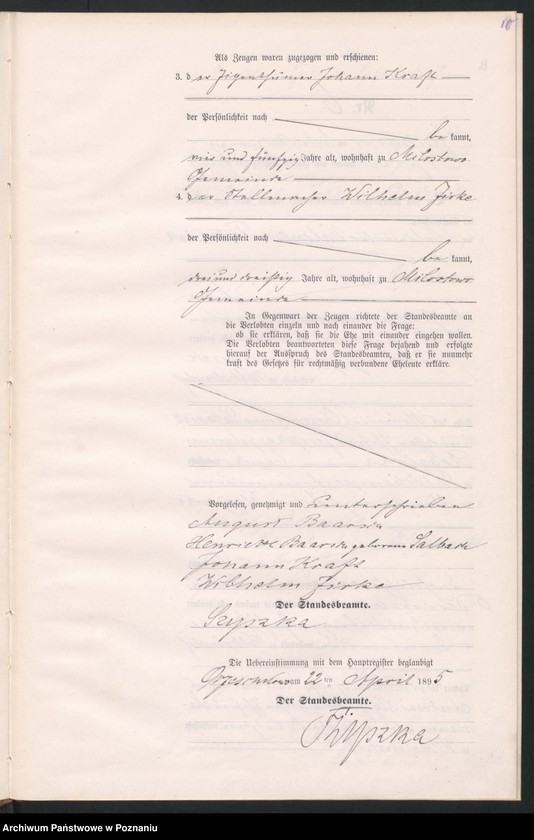 10
Als Zeugen waren zugezogen und erschienen:
3. der Eigenthümer Johann Kraft
der Persönlichkeit nach
be kannt,
vier und fünfzig Jahre alt, wohnhaft zu Milostowo
Gemeinde
4. der Stellmacher Wilhelm Zirke
der Persönlichkeit nach
be kannt,
drei und dreißig Jahre alt, wohnhaft zu Milostowo
Gemeinde
In Gegenwart der Zeugen richtete der Standesbeamte an
die Verlobten einzeln und nach einander die Frage:
ob sie erklären, daß sie die Ehe mit einander eingehen wollen.
Die Verlobten beantworteten diese Frage bejahend und erfolgte
hierauf der Ausspruch des Standesbeamten, daß er sie nunmehr
kraft des Gesetzes für rechtmäßig verbundene Eheleute erkläre.
Vorgelesen, genehmigt und unterschrieben
August
Henriette geborene
Johann Kraft
Wilhelm Zirke
Der Standesbeamte.
Die Uebereinstimmung mit dem Hauptregister beglaubigt
am 22ten April 1895
Der Standesbeamte.
Archiwum Państwowe w Poznaniu